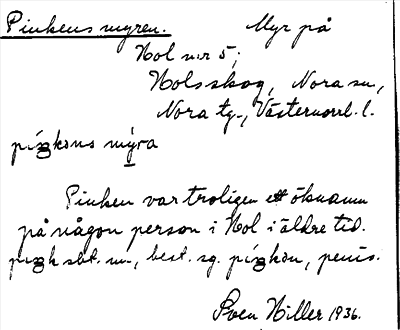 Pinkens myren. Myr på
Hol nr 5,
Hols skog, Nora sn,
Nora tg., Västernorrl. l.
píŋkəns mỳra
Pinken var troligen ett öknamn
på någon person i Hol i äldre tid.
piŋk sbt. m., best. sg. píŋkən, penis.
Sven Hiller 1936.